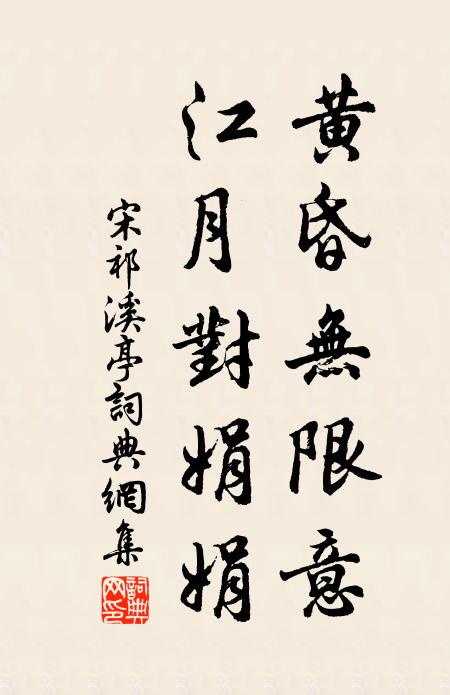 黃昏無限意
江月對娟娟
宋祁溪亭詞典網集
詞典網印